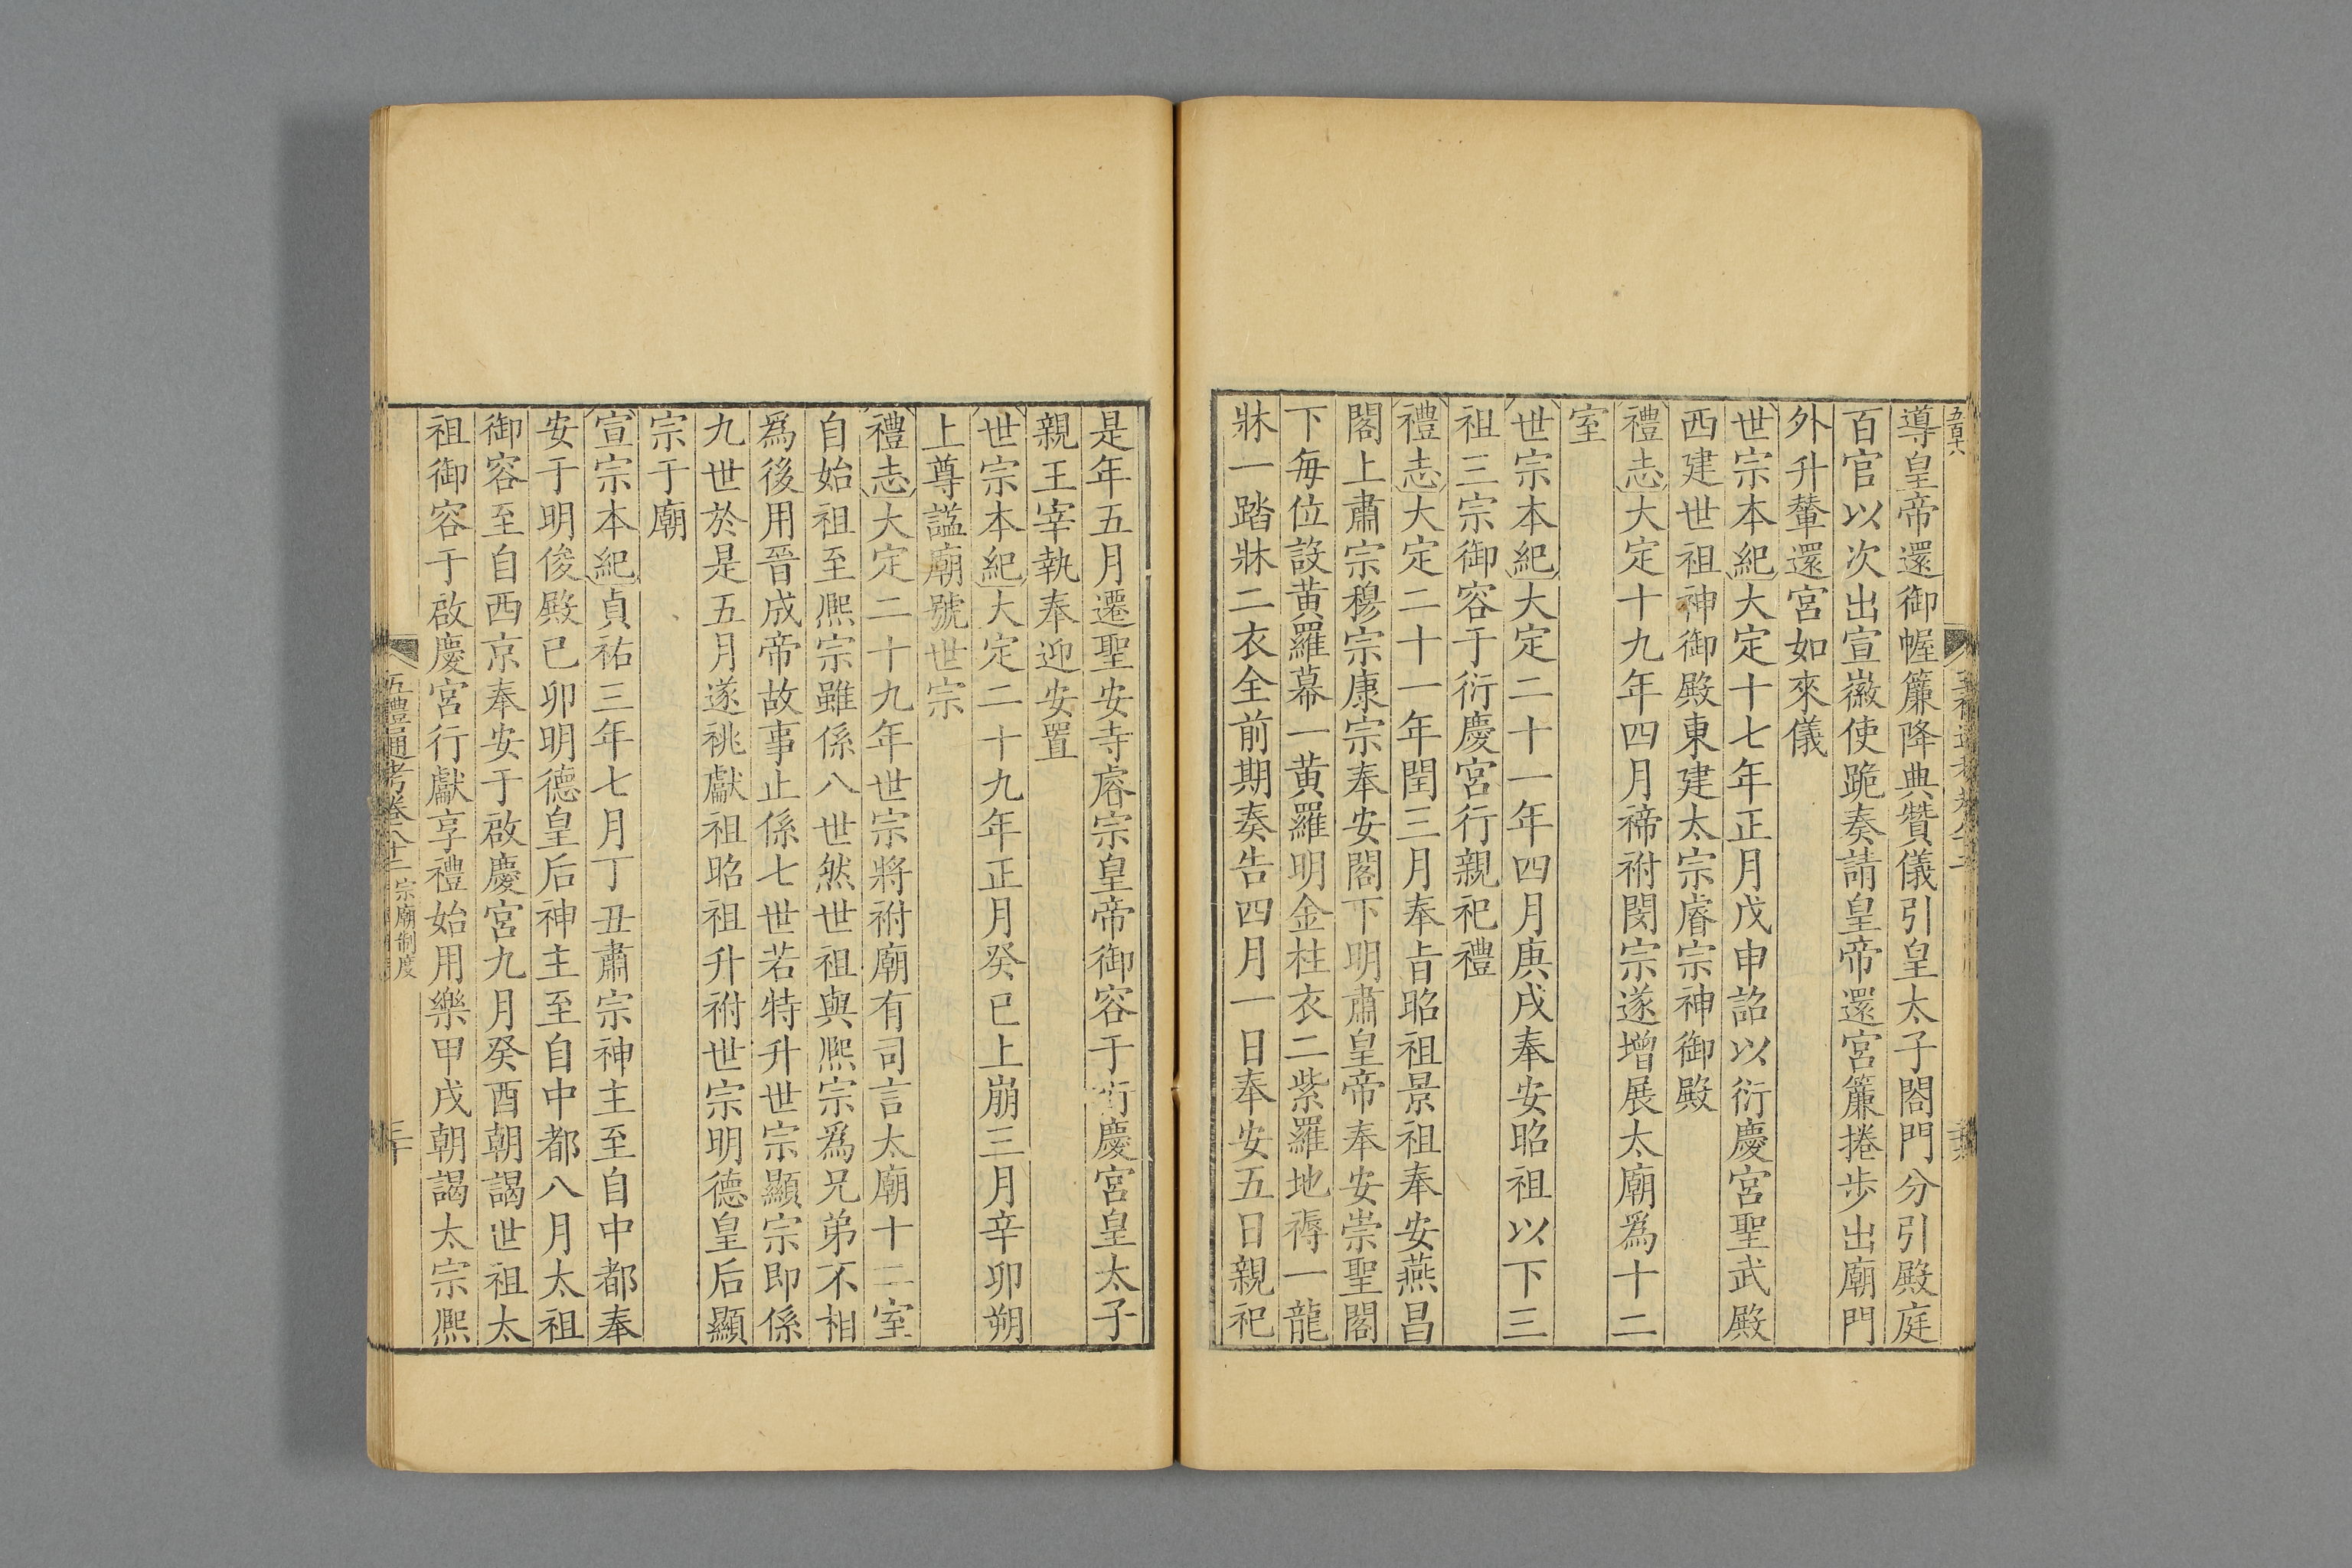 五百十八
導皇帝還御幄簾降典贊儀引皇太子閤門分引殿庭
百官以次出宣徽使跪奏請皇帝還宮簾捲步出廟門
外升輦還宮如來儀
世宗本紀大定十七年正月戊申詔以衍慶宮聖武殿
西建世祖神御殿東建太宗睿宗神御殿
禮志大定十九年四月禘祔閔宗遂增展太廟爲十二
室
世宗本紀大定二十一年四月庚戌奉安昭祖以下三
祖三宗御容于衍慶宮行親祀禮
禮志大定二十一年閏三月奉旨昭祖景祖奉安燕昌
閣上肅宗穆宗康宗奉安閣下明肅皇帝奉安崇聖閣
下每位設黃羅幕一黃羅明金柱衣二紫羅地褥一龍
牀一踏牀二衣全前期奏告四月一日奉安五日親祀
是年五月遷聖安寺睿宗皇帝御容于衍慶宮皇太子
親王宰執奉迎安置
世宗本紀大定二十九年正月癸巳上崩三月辛卯朔
上尊諡廟號世宗
禮志大定二十九年世宗將祔廟有司言太廟十二室
自始祖至熙宗雖係八世然世祖與熙宗爲兄弟不相
爲後用晉成帝故事止係七世若特升世宗顯宗即係
九世於是五月遂祧獻祖昭祖升祔世宗明德皇后顯
宗于廟
宣宗本紀貞祐三年七月丁丑肅宗神主至自中都奉
安于明俊殿己卯明德皇后神主至自中都八月太祖
御容至自西京奉安于啟慶宮九月癸酉朝謁世祖太
祖御容于啟慶宮行獻享禮始用樂甲戌朝謁太宗熙
五禮通考卷八十二 宗廟制度